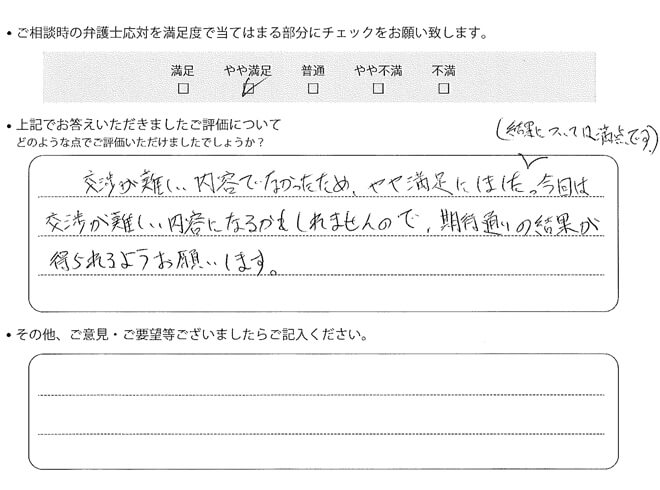 • ご相談時の弁護士応対を満足度で当てはまる部分にチェックをお願い致します。
満足 やや満足 普通 やや不満 不満
□ ☑ □ □ □
• 上記でお答えいただきましたご評価について
どのような点でご評価いただけましたでしょうか？
(結果については満点です)
交渉が難しい内容でなかったため、やや満足にしました。今回は
交渉が難しい内容になるかもしれませんので、期待通りの結果が
得られるようお願いします。
• その他、ご意見・ご要望等ございましたらご記入ください。